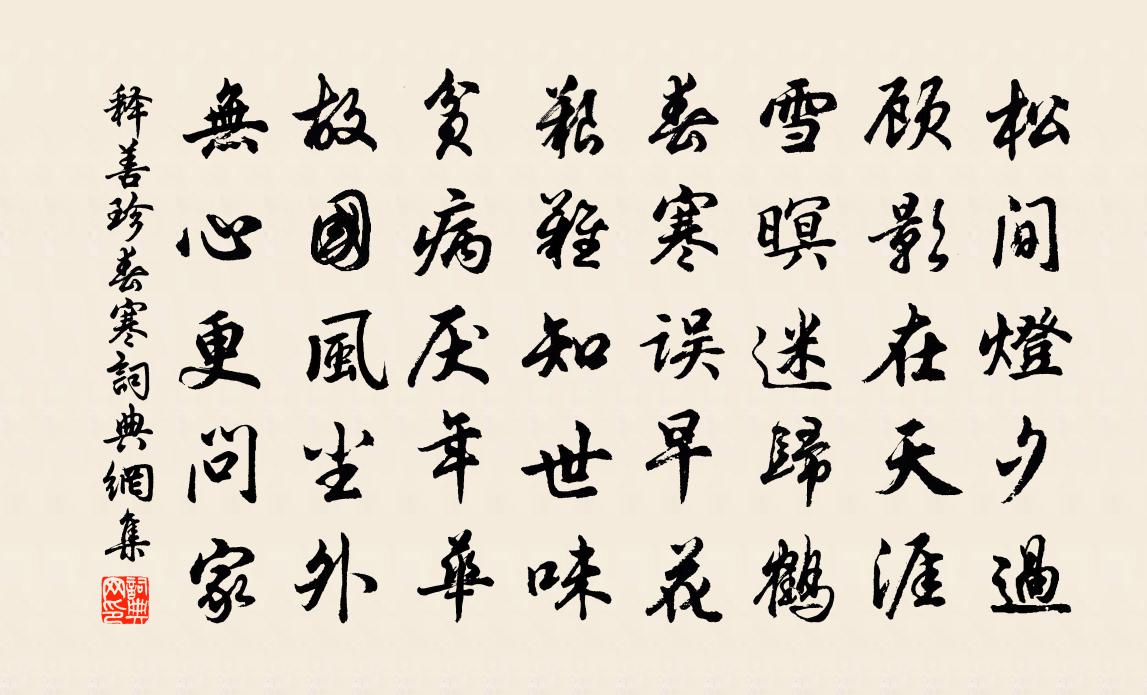 松间燈夕過
顾影在天涯
雪暝迷歸鹤
春寒误早花
艱難知世味
貧病厌年華
故國風尘外
無心更問家
释善珍春寒詞典網集
詞典网印